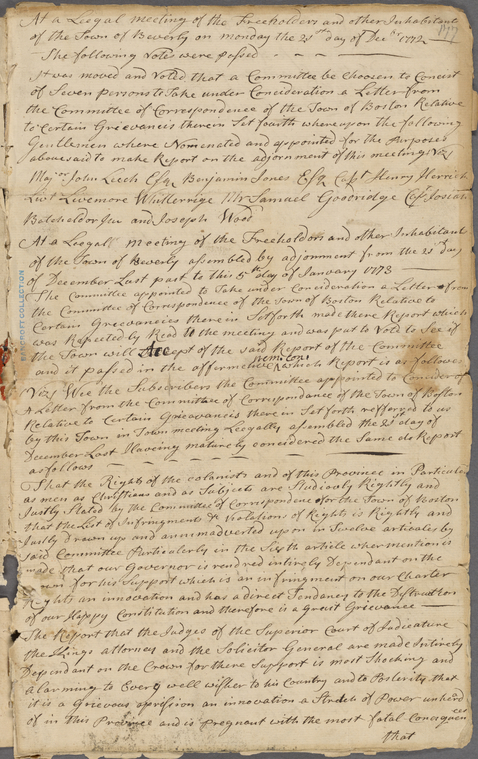 At a Leegal meeting of the Freeholders and other Inhabitants
of the Town of Beverly on monday the 21st day of Decr 1772
The following Votes were passed
It was moved and Voted that a Committee be Choosen to Concist
of Seven persons to Take under Concideration a Letter from
the Committee of Correspondence of the Town of Boston Relative
to Certain Grievancis therein Set fourth whereupon the following
Gentlemen where Nomenated and appointed for the Purposed
abovesaid to make Report on the adjornment of this meeting Viz
Majr John Leech Esqr Benjamin Jones Esqr Capt Henry Herrick
Livt Livemore Whitterige Mr Samuel Goodridge Capt Josiah
Batcheldor Jur and Joseph Wood
At a Leegall meeting of the Freeholders and other Inhabitants
of the Town of Beverly assembled by adjornment from the 21st day
of December Last past to this 5th day of January 1773
The Committee appointed to Take under Concideration a Letter from
the Committee of Correspondence of the Town of Boston Relative to
Certain Grievancies there in Setforth made there Report which
was Repected by Read to the meeting and was put to Vote to See if
the Town will Accept of the said Report of the Committee
and it passed in the affirmetive which Report is as followes
Viz Wee the Subscribers the Committee appointed to Concider of
a Letter from the Committee of Correspondance of the Town of Boston
Relative to Certain Grievancis there in Set forth refferred to us
by this Town in Town meeting Leegally assembled the 21st day of
December Last Haveing maturely concidered the Same do Report
as follows
That the Rights of the colanists and of this Province in Particuler
as men as Christians and as Subjects are Studiously Rightly and
Justly Stated by the Committee of Correspondence for the Town of Boston
that the List of Infringments & Violations of Rights is Rightly and
Justly drawn up and annimadverted upon in Twelve articales by
said Committee Particulerly in the Sixth article wher mention is
made that our Governor is rendred intirely Dependant on the
for his Support which is an infringment on our Charter
Rights an innovation and has a direct Tendancy to the Distruction
of our Happy Constitution and therefore is a great Grievance
The Report that the Judges of the Superior Court of Judicature
the Kings attorney and the Solicitor General are made Intirely
Dependant on the Crown for there Support is most Shocking and
alarming to Every well wisher to his Country and to Posterity that
it is a Grievous opression an innovation a Strech of Power unherd
of in this Province and is pregnant with the most fatal Concequences
that
BANCROFT COLLECTION